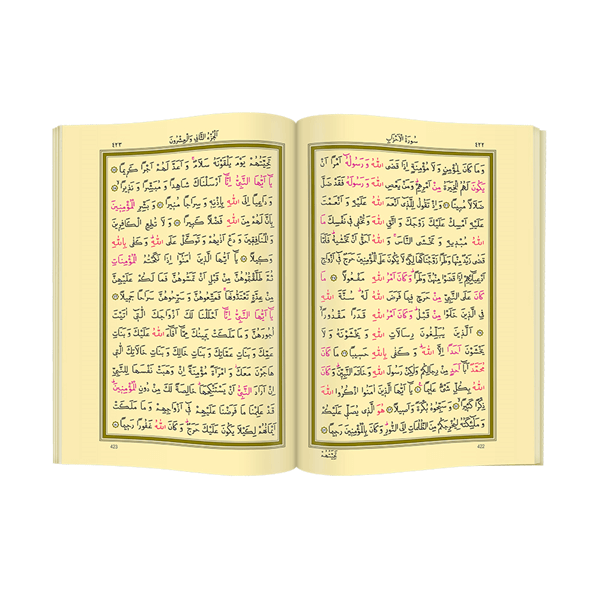 سورة الاحزاب ٤٢٢
وَمَا كَانَ لِمُؤْمِنٍ وَلَا مُؤْمِنَةٍ اِذَا قَضَى اللّٰهُ وَرَسُولُهُٓ اَمْرًا اَنْ
يَكُونَ لَهُمُ الْخِيَرَةُ مِنْ اَمْرِهِمْ وَمَنْ يَعْصِ اللّٰهَ وَرَسُولَهُ فَقَدْ ضَلَّ
ضَلَالًا مُبِينًا وَاِذْ تَقُولُ لِلَّذِٓي اَنْعَمَ اللّٰهُ عَلَيْهِ وَاَنْعَمْتَ
عَلَيْهِ اَمْسِكْ عَلَيْكَ زَوْجَكَ وَاتَّقِ اللّٰهَ وَتُخْفِي فِي نَفْسِكَ مَا
اللّٰهُ مُبْدِيهِ وَتَخْشَى النَّاسَ وَاللّٰهُ اَحَقُّ اَنْ تَخْشٰيهُ فَلَمَّا
قَضٰى زَيْدٌ مِنْهَا وَطَرًا زَوَّجْنَاكَهَا لِكَيْ لَا يَكُونَ عَلَى الْمُؤْمِنِينَ حَرَجٌ فِٓي اَزْوَاجِ
اَدْعِيَٓائِهِمْ اِذَا قَضَوْا مِنْهُنَّ وَطَرًا وَكَانَ اَمْرُ اللّٰهِ مَفْعُولًا مَا
كَانَ عَلَى النَّبِيِّ مِنْ حَرَجٍ فِيمَا فَرَضَ اللّٰهُ لَهُ سُنَّةَ اللّٰهِ
فِي الَّذِينَ خَلَوْا مِنْ قَبْلُ وَكَانَ اَمْرُ اللّٰهِ قَدَرًا مَقْدُورًا
اَلَّذِينَ يُبَلِّغُونَ رِسَالَاتِ اللّٰهِ وَيَخْشَوْنَهُ وَلَا
يَخْشَوْنَ اَحَدًا اِلَّا اللّٰهَ وَكَفٰى بِاللّٰهِ حَسِيبًا مَا كَانَ
مُحَمَّدٌ اَبَٓا اَحَدٍ مِنْ رِجَالِكُمْ وَلٰكِنْ رَسُولَ اللّٰهِ وَخَاتَمَ النَّبِيِّنَ وَكَانَ
اللّٰهُ بِكُلِّ شَيْءٍ عَلِيمًا يَٓا اَيُّهَا الَّذِينَ اٰمَنُوا اذْكُرُوا اللّٰهَ
ذِكْرًا كَثِيرًا وَسَبِّحُوهُ بُكْرَةً وَاَصِيلًا هُوَ الَّذِي يُصَلِّي عَلَيْكُمْ
وَمَلٰٓئِكَتُهُ لِيُخْرِجَكُمْ مِنَ الظُّلُمَاتِ اِلَى النُّورِ وَكَانَ بِالْمُؤْمِنِينَ رَحِيمًا
422
تَحِيَّتُهُمْ
الجزء الثاني والعشرون ٤٢٣
تَحِيَّتُهُمْ يَوْمَ يَلْقَوْنَهُ سَلَامٌ وَاَعَدَّ لَهُمْ اَجْرًا كَرِيمًا
يَٓا اَيُّهَا النَّبِيُّ اِنَّٓا اَرْسَلْنَاكَ شَاهِدًا وَمُبَشِّرًا وَنَذِيرًا
وَدَاعِيًا اِلَى اللّٰهِ بِاِذْنِهِ وَسِرَاجًا مُنِيرًا وَبَشِّرِ الْمُؤْمِنِينَ
بِاَنَّ لَهُمْ مِنَ اللّٰهِ فَضْلًا كَبِيرًا وَلَا تُطِعِ الْكَافِرِينَ
وَالْمُنَافِقِينَ وَدَعْ اَذٰيهُمْ وَتَوَكَّلْ عَلَى اللّٰهِ وَكَفٰى بِاللّٰهِ
وَكِيلًا يَٓا اَيُّهَا الَّذِينَ اٰمَنُٓوا اِذَا نَكَحْتُمُ الْمُؤْمِنَاتِ
ثُمَّ طَلَّقْتُمُوهُنَّ مِنْ قَبْلِ اَنْ تَمَسُّوهُنَّ فَمَا لَكُمْ عَلَيْهِنَّ
مِنْ عِدَّةٍ تَعْتَدُّونَهَا فَمَتِّعُوهُنَّ وَسَرِّحُوهُنَّ سَرَاحًا جَمِيلًا
يَٓا اَيُّهَا النَّبِيُّ اِنَّٓا اَحْلَلْنَا لَكَ اَزْوَاجَكَ الّٰتِٓي اٰتَيْتَ
اُجُورَهُنَّ وَمَا مَلَكَتْ يَمِينُكَ مِمَّٓا اَفَٓاءَ اللّٰهُ عَلَيْكَ وَبَنَاتِ
عَمِّكَ وَبَنَاتِ عَمَّاتِكَ وَبَنَاتِ خَالِكَ وَبَنَاتِ خَالَاتِكَ الّٰتِي
هَاجَرْنَ مَعَكَ وَامْرَاَةً مُؤْمِنَةً اِنْ وَهَبَتْ نَفْسَهَا لِلنَّبِيِّ
اِنْ اَرَادَ النَّبِيُّ اَنْ يَسْتَنْكِحَهَا خَالِصَةً لَكَ مِنْ دُونِ الْمُؤْمِنِينَ
قَدْ عَلِمْنَا مَا فَرَضْنَا عَلَيْهِمْ فِٓي اَزْوَاجِهِمْ وَمَا مَلَكَتْ
اَيْمَانُهُمْ لِكَيْلَا يَكُونَ عَلَيْكَ حَرَجٌ وَكَانَ اللّٰهُ غَفُورًا رَحِيمًا
423